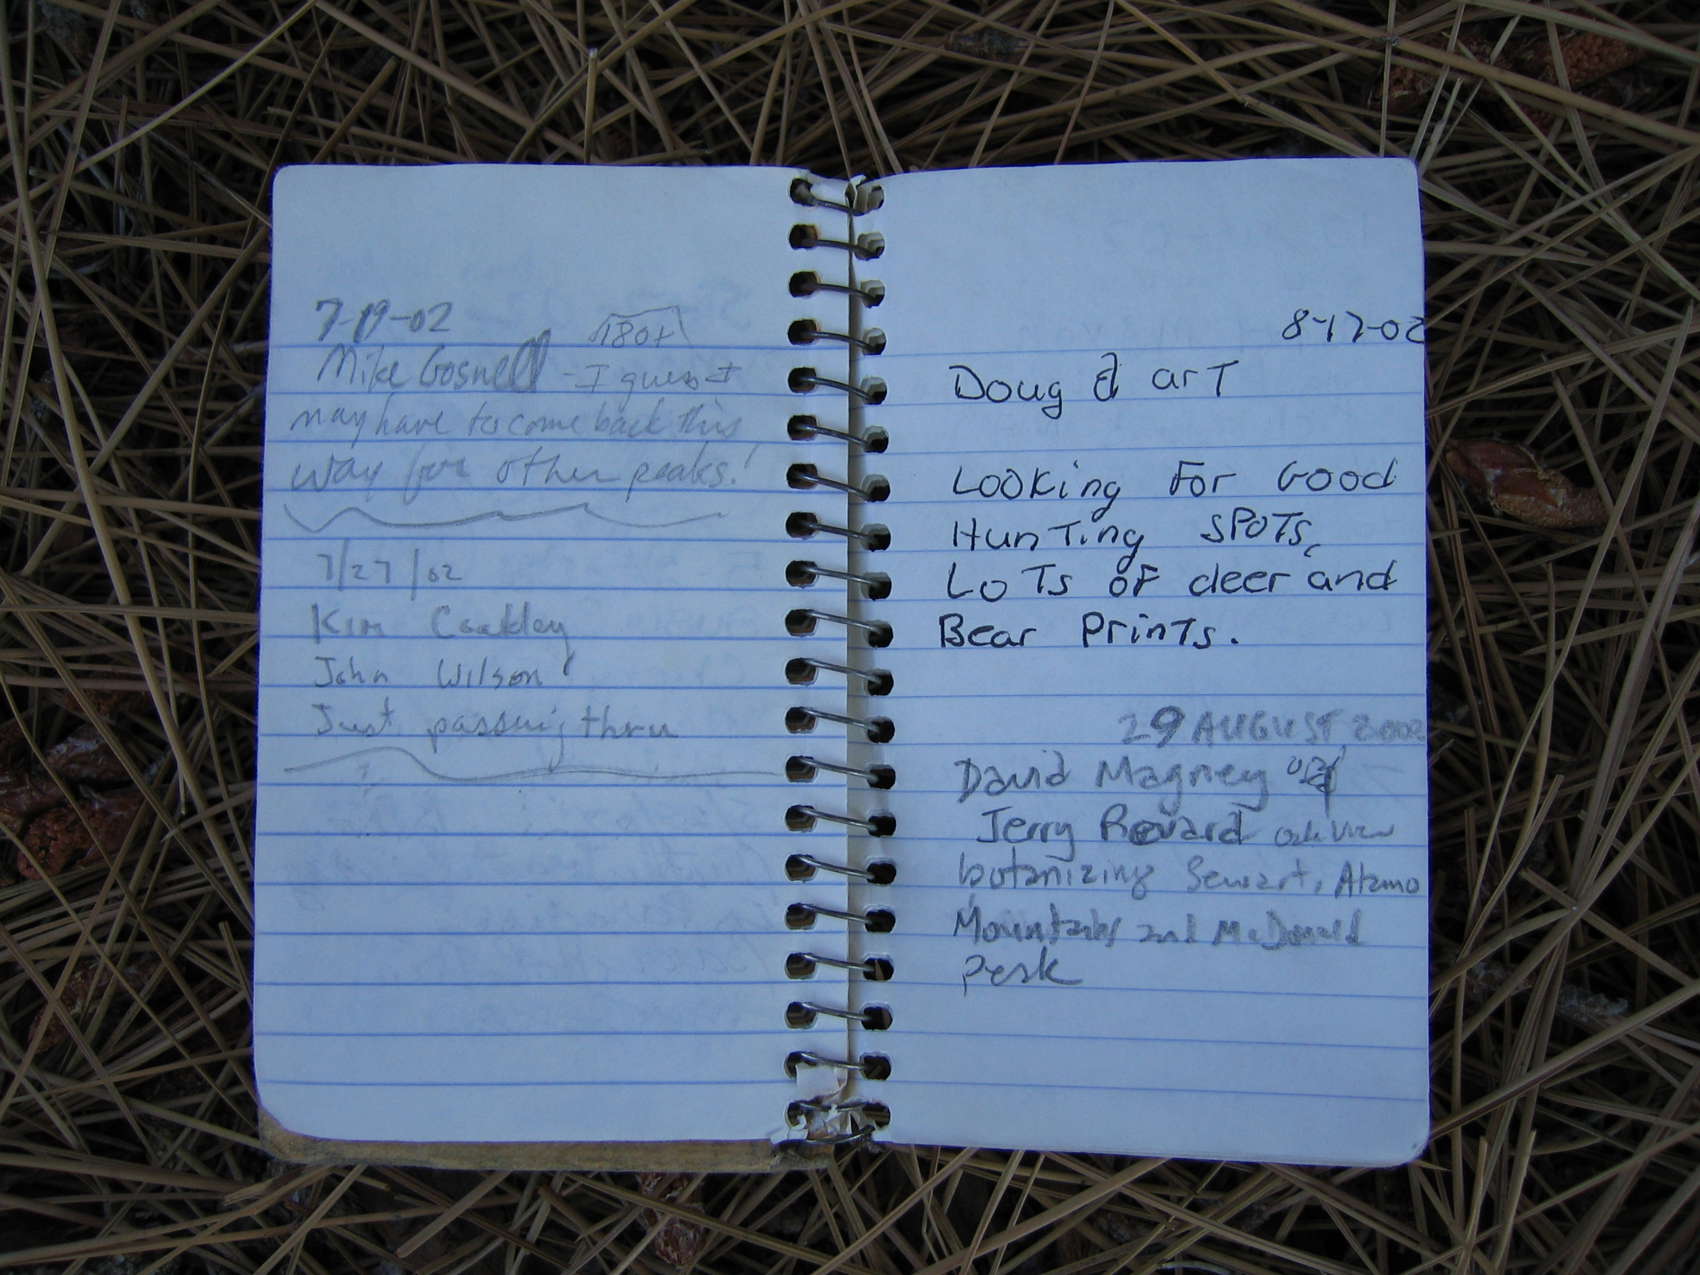 7-19-02
180+
Mike Gosnell - I guess I
may have to come back this
way for other peaks!
7/27/02
Kim Coakley
John Wilson
Just passing thru
8-17-02
Doug & art
Looking For Good
Hunting SPOTS,
LoTs oF deer and
Bear PrinTs.
29 AUGUST 2002
David Magney
Jerry Revard Oak View
botanizing Sewart, Alamo
Mountains and McDonald
Peak